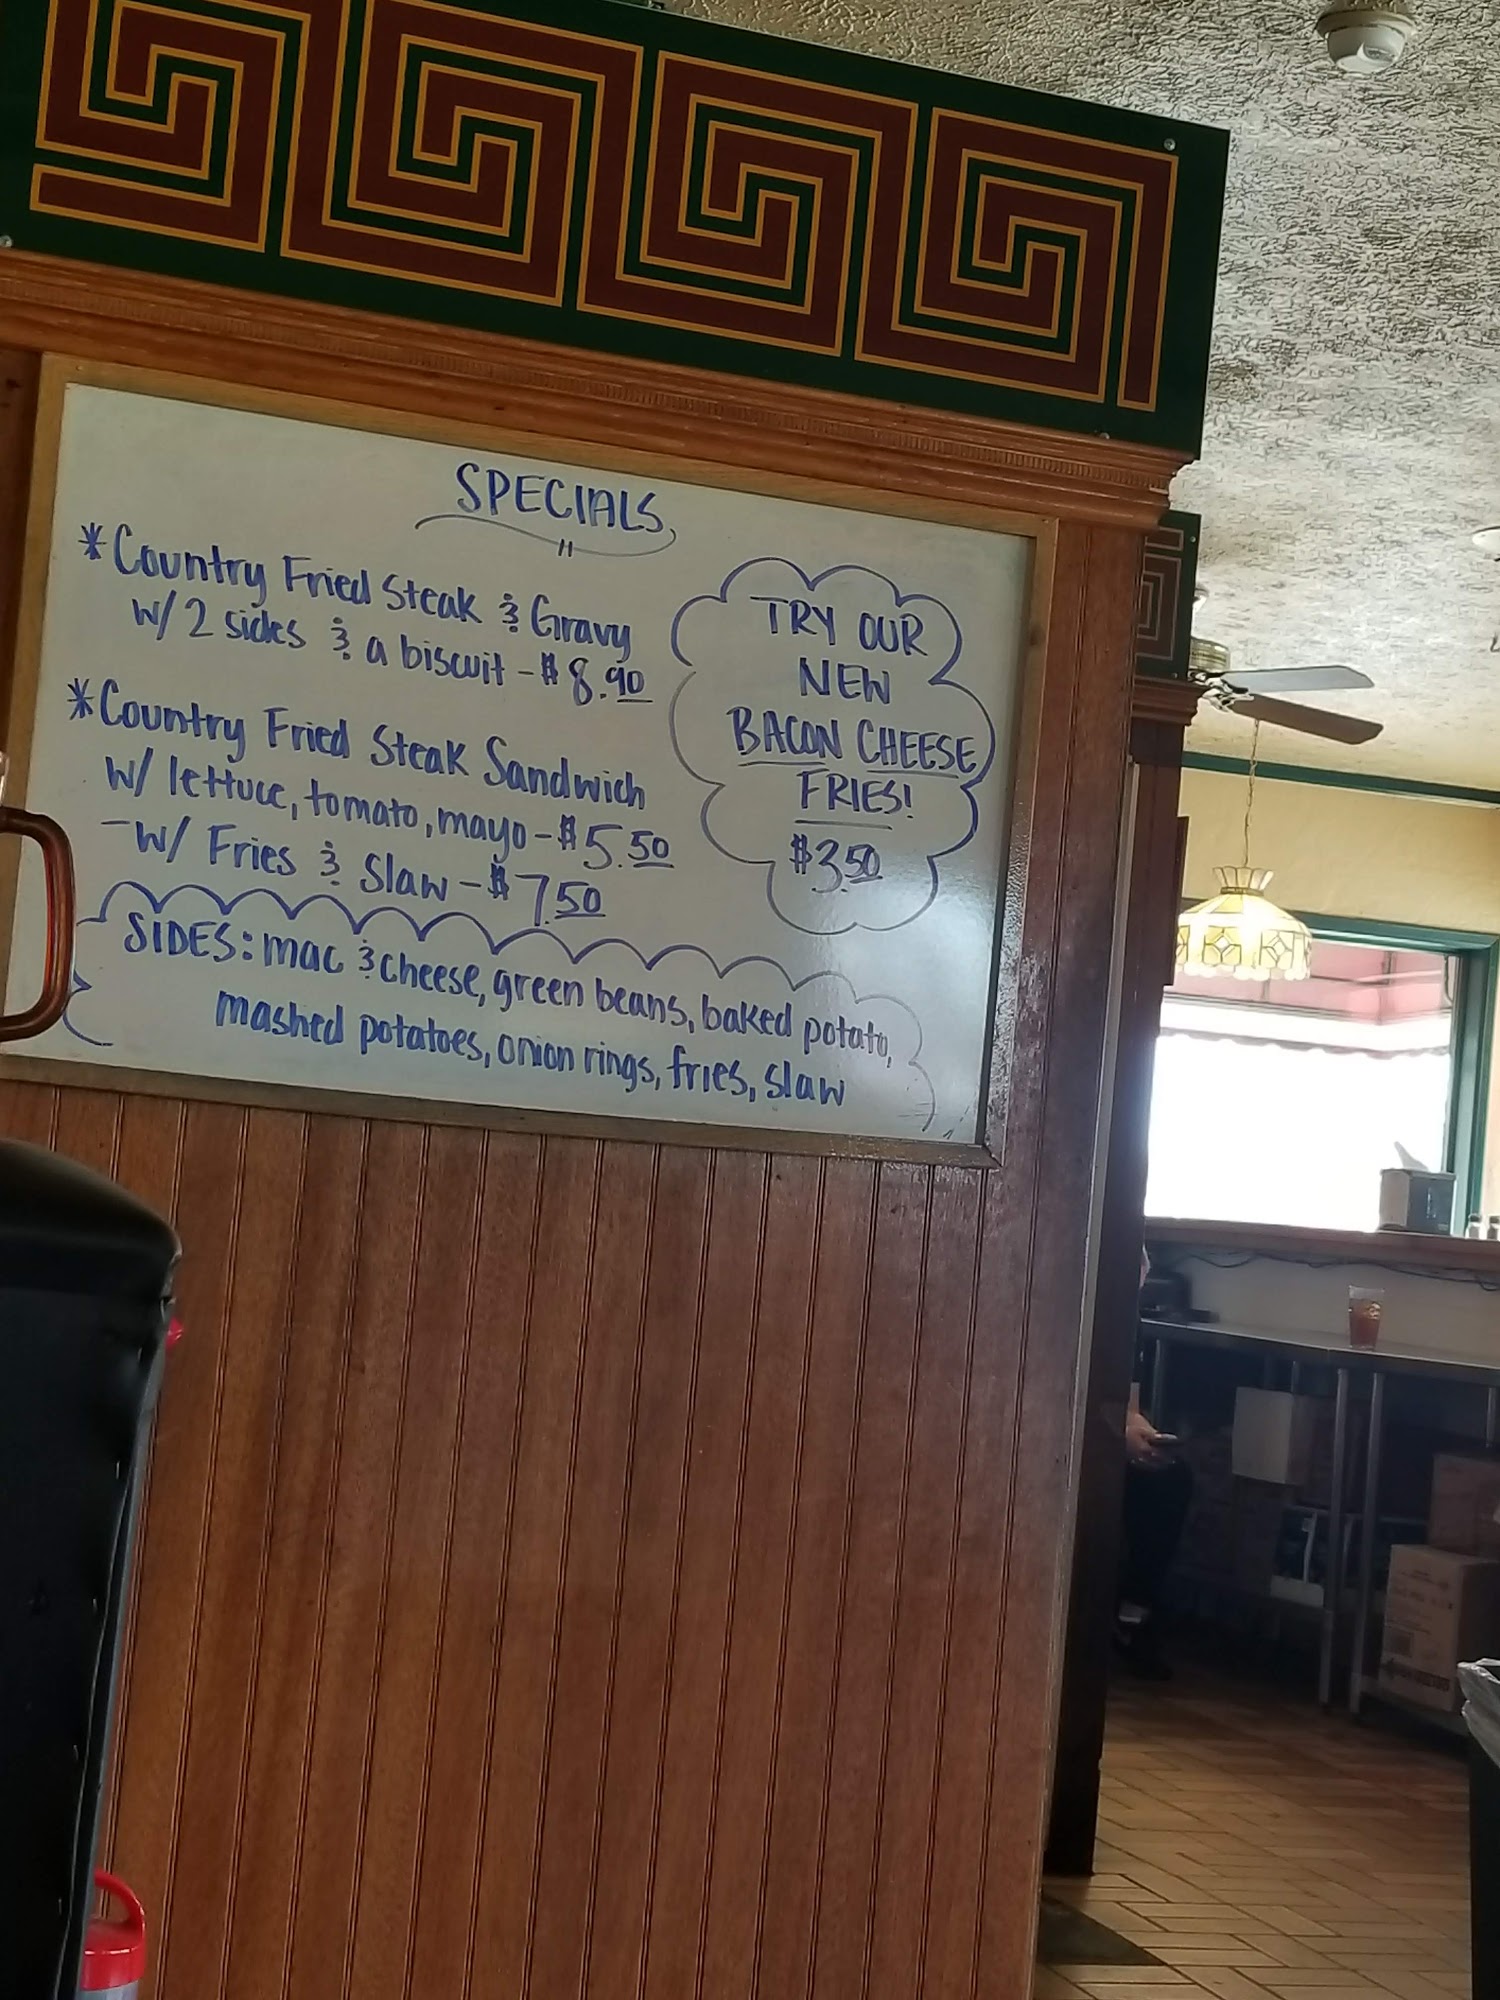 SPECIALS
*Country Fried Steak & Gravy
w/ 2 sides & a biscuit - $8.90
*Country Fried Steak Sandwich
w/ lettuce, tomato, mayo - $5.50
- w/ Fries & Slaw - $7.50
TRY OUR
NEW
BACON CHEESE
FRIES!
$3.50
SIDES: mac & cheese, green beans, baked potato,
mashed potatoes, onion rings, fries, slaw